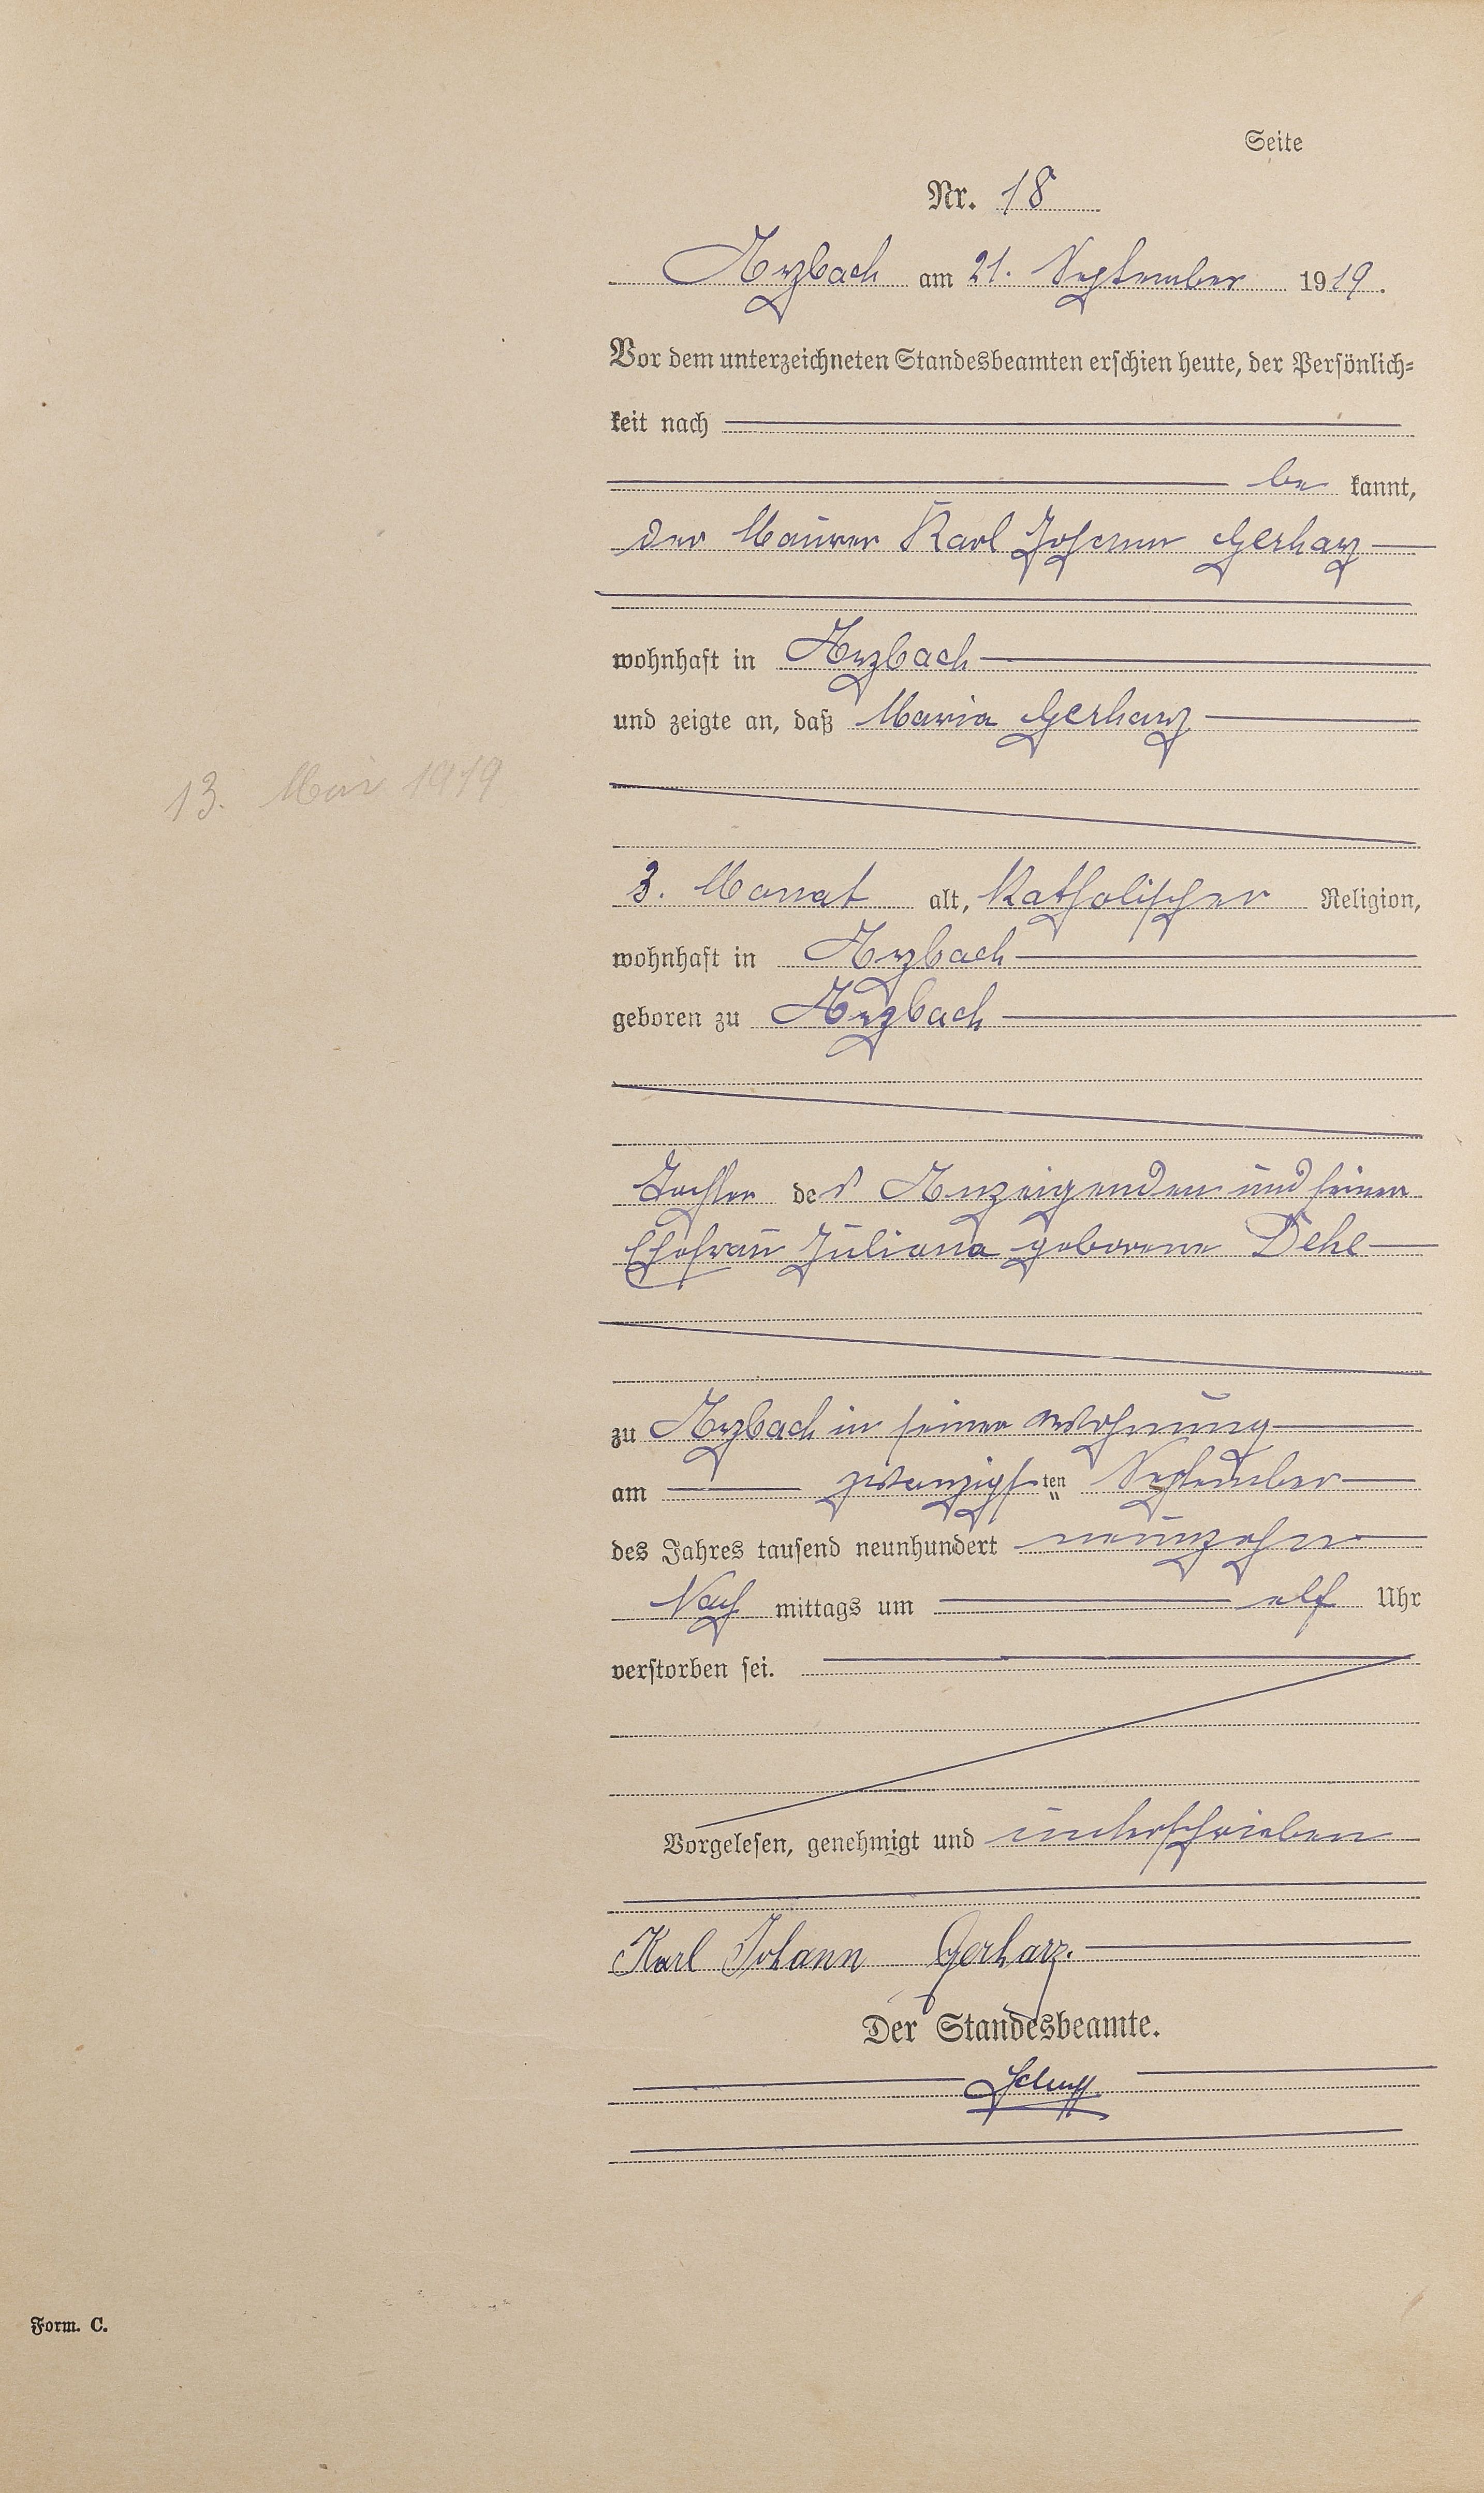 Seite
Nr. 18
Arzbach am 21. September 1919.
Vor dem unterzeichneten Standesbeamten erschien heute, der Persönlich-
keit nach
be kannt,
der Maurer Karl Johann Gerharz
wohnhaft in Arzbach
und zeigte an, daß Maria Gerharz
13. Mai 1919
3. Monat alt, katholischer Religion,
wohnhaft in Arzbach
geboren zu Arzbach
Tochter des Anzeigenden und seiner
Ehefrau Juliana geborene Dehe
zu Arzbach in seiner Wohnung
am zwanzigsten September
des Jahres tausend neunhundert neunzehn
Nach mittags um elf Uhr
verstorben sei.
Vorgelesen, genehmigt und unterschrieben
Karl Johann Gerharz.
Der Standesbeamte.
Form. C.